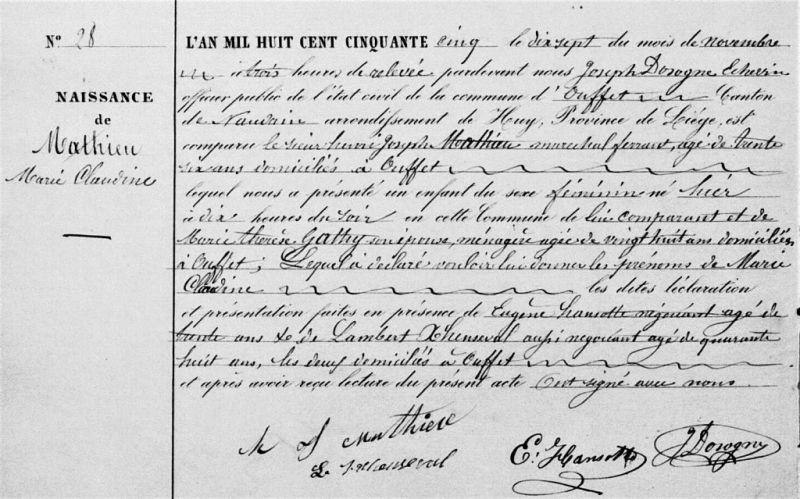 N° 28
NAISSANCE
de
Mathieu
Marie Claudine
L'AN MIL HUIT CENT CINQUANTE cinq le dix sept du mois de novembre
à trois heures de relevée pardevant nous Joseph Dosogne Echevin
officier public de l'état civil de la commune d'Ouffet Canton
de Nandrin arrondissement de Huy, Province de Liége, est
comparu le sieur henri Joseph Mathieu marechal ferrant, agé de trente
six ans domiciliés à Ouffet
lequel nous a présenté un enfant du sexe féminin né hier
à dix heures du soir en cette Commune de lui comparant et de
Marie thérèse Gathy son épouse, ménagère agée de vingt huit ans domiciliés
à Ouffet ; Lequel a déclaré vouloir lui donner les prénoms de Marie
Claudine les dites declaration
et présentation faites en présence de Eugène hansotte négociant agé de
trente ans & de Lambert Xhenseval aussi negociant agé de quarante
huit ans, les deux domiciliés à Ouffet
et après avoir reçu lecture du présent acte ont signé avec nous.
Mathieu
L. Xhenseval
E. Hansotte
J Dosogne